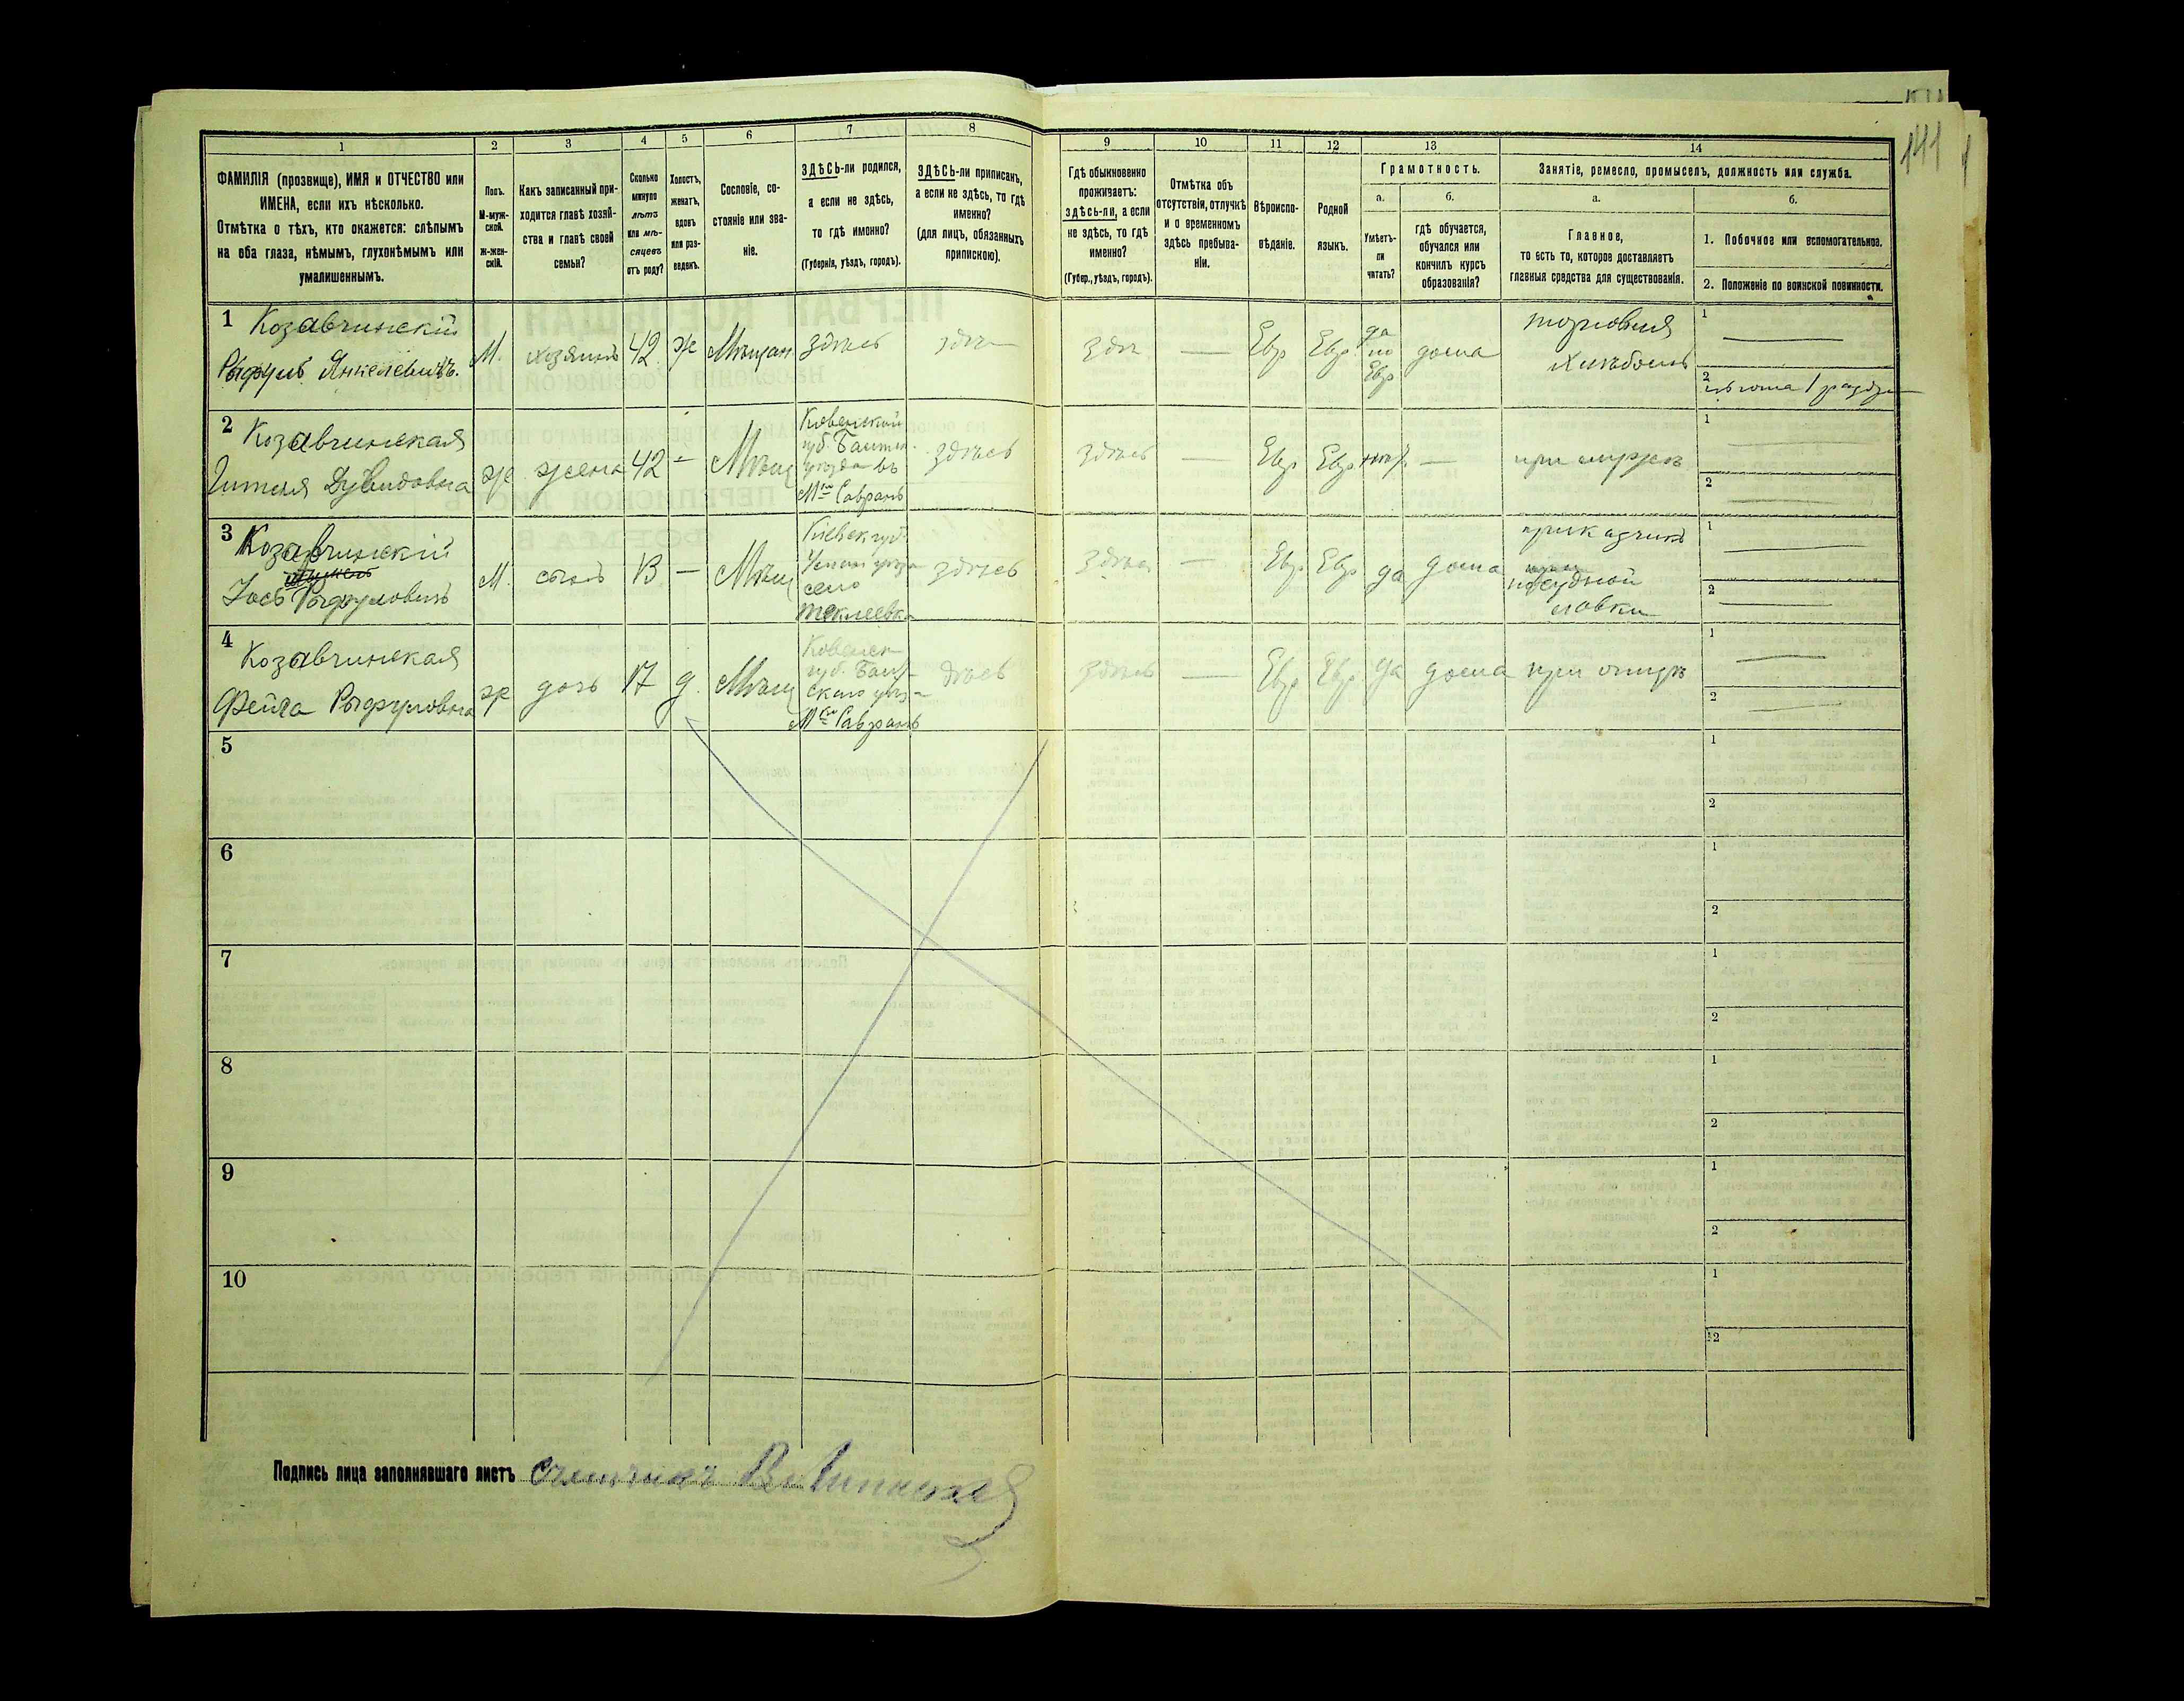 141
1
2
3
4
5
6
7
8
9
10
11
12
13
14
ФАМИЛІЯ (прозвище), ИМЯ и ОТЧЕСТВО или
ИМЕНА, если ихъ нѣсколько.
Отмѣтка о тѣхъ, кто окажется: слѣпымъ
на оба глаза, нѣмымъ, глухонѣмымъ или
умалишеннымъ.
Полъ.
М-муж-
ской.
ж-жен-
скій.
Какъ записанный при-
ходится главѣ хозяй-
ства и главѣ своей
семьи?
Сколько
минуло
лѣтъ
или мѣ-
сяцевъ
отъ роду?
Холостъ,
женатъ,
вдовъ
или раз-
веденъ.
Сословіе, со-
стояніе или зва-
ніе.
ЗДѢСЬ-ли родился,
а если не здѣсь,
то гдѣ именно?
(Губернія, уѣздъ, городъ).
ЗДѢСЬ-ли приписанъ,
а если не здѣсь, то гдѣ
именно?
(для лицъ, обязанныхъ
припискою).
Гдѣ обыкновенно
проживаетъ:
здѣсь-ли, а если
не здѣсь, то гдѣ
именно?
(Губер., уѣздъ, городъ).
Отмѣтка объ
отсутствіи, отлучкѣ
и о временномъ
здѣсь пребыва-
ніи.
Вѣроиспо-
вѣданіе.
Родной
языкъ.
Грамотность.
а.
Умѣетъ-
ли
читать?
б.
гдѣ обучается,
обучался или
кончилъ курсъ
образованія?
Занятіе, ремесло, промыселъ, должность или служба.
а.
Главное,
то есть то, которое доставляетъ
главныя средства для существованія.
б.
1. Побочное или вспомогательное.
2. Положеніе по воинской повинности.
1
Козавчинскій
Рыфулъ Янкелевичъ.
М.
хозяинъ
42
ж
Мѣщан.
здѣсь
здѣсь
Евр
Евр.
да
по
Евр
дома
торговля
хлѣбомъ
1
2
2
Козавчинская
Дувидовна
ж
жена
42
Мѣщ
губ. Балтск.
уѣзда въ
Мко Саврань
здѣсь
здѣсь
Евр
Евр
нѣтъ
при мужѣ
1
2
3
Козавчинскій
Іось Рыфуловичъ
М.
сынъ
13
Мѣщ
Кіевск губ.
село
Теклеевка
здѣсь
Евр
Евр
да
дома
прикащикъ
посудной
лавки
1
2
4
Козавчинская
Фейга Рыфуловна
ж
дочь
17
д.
Мѣщ
губ. Балт-
скаго уѣз-
Мко Саврань
здѣсь
здѣсь
Евр
Евр
да
дома
при отцѣ
1
2
5
1
2
6
1
2
7
1
2
8
1
2
9
1
2
10
1
2
Подпись лица заполнявшаго листъ